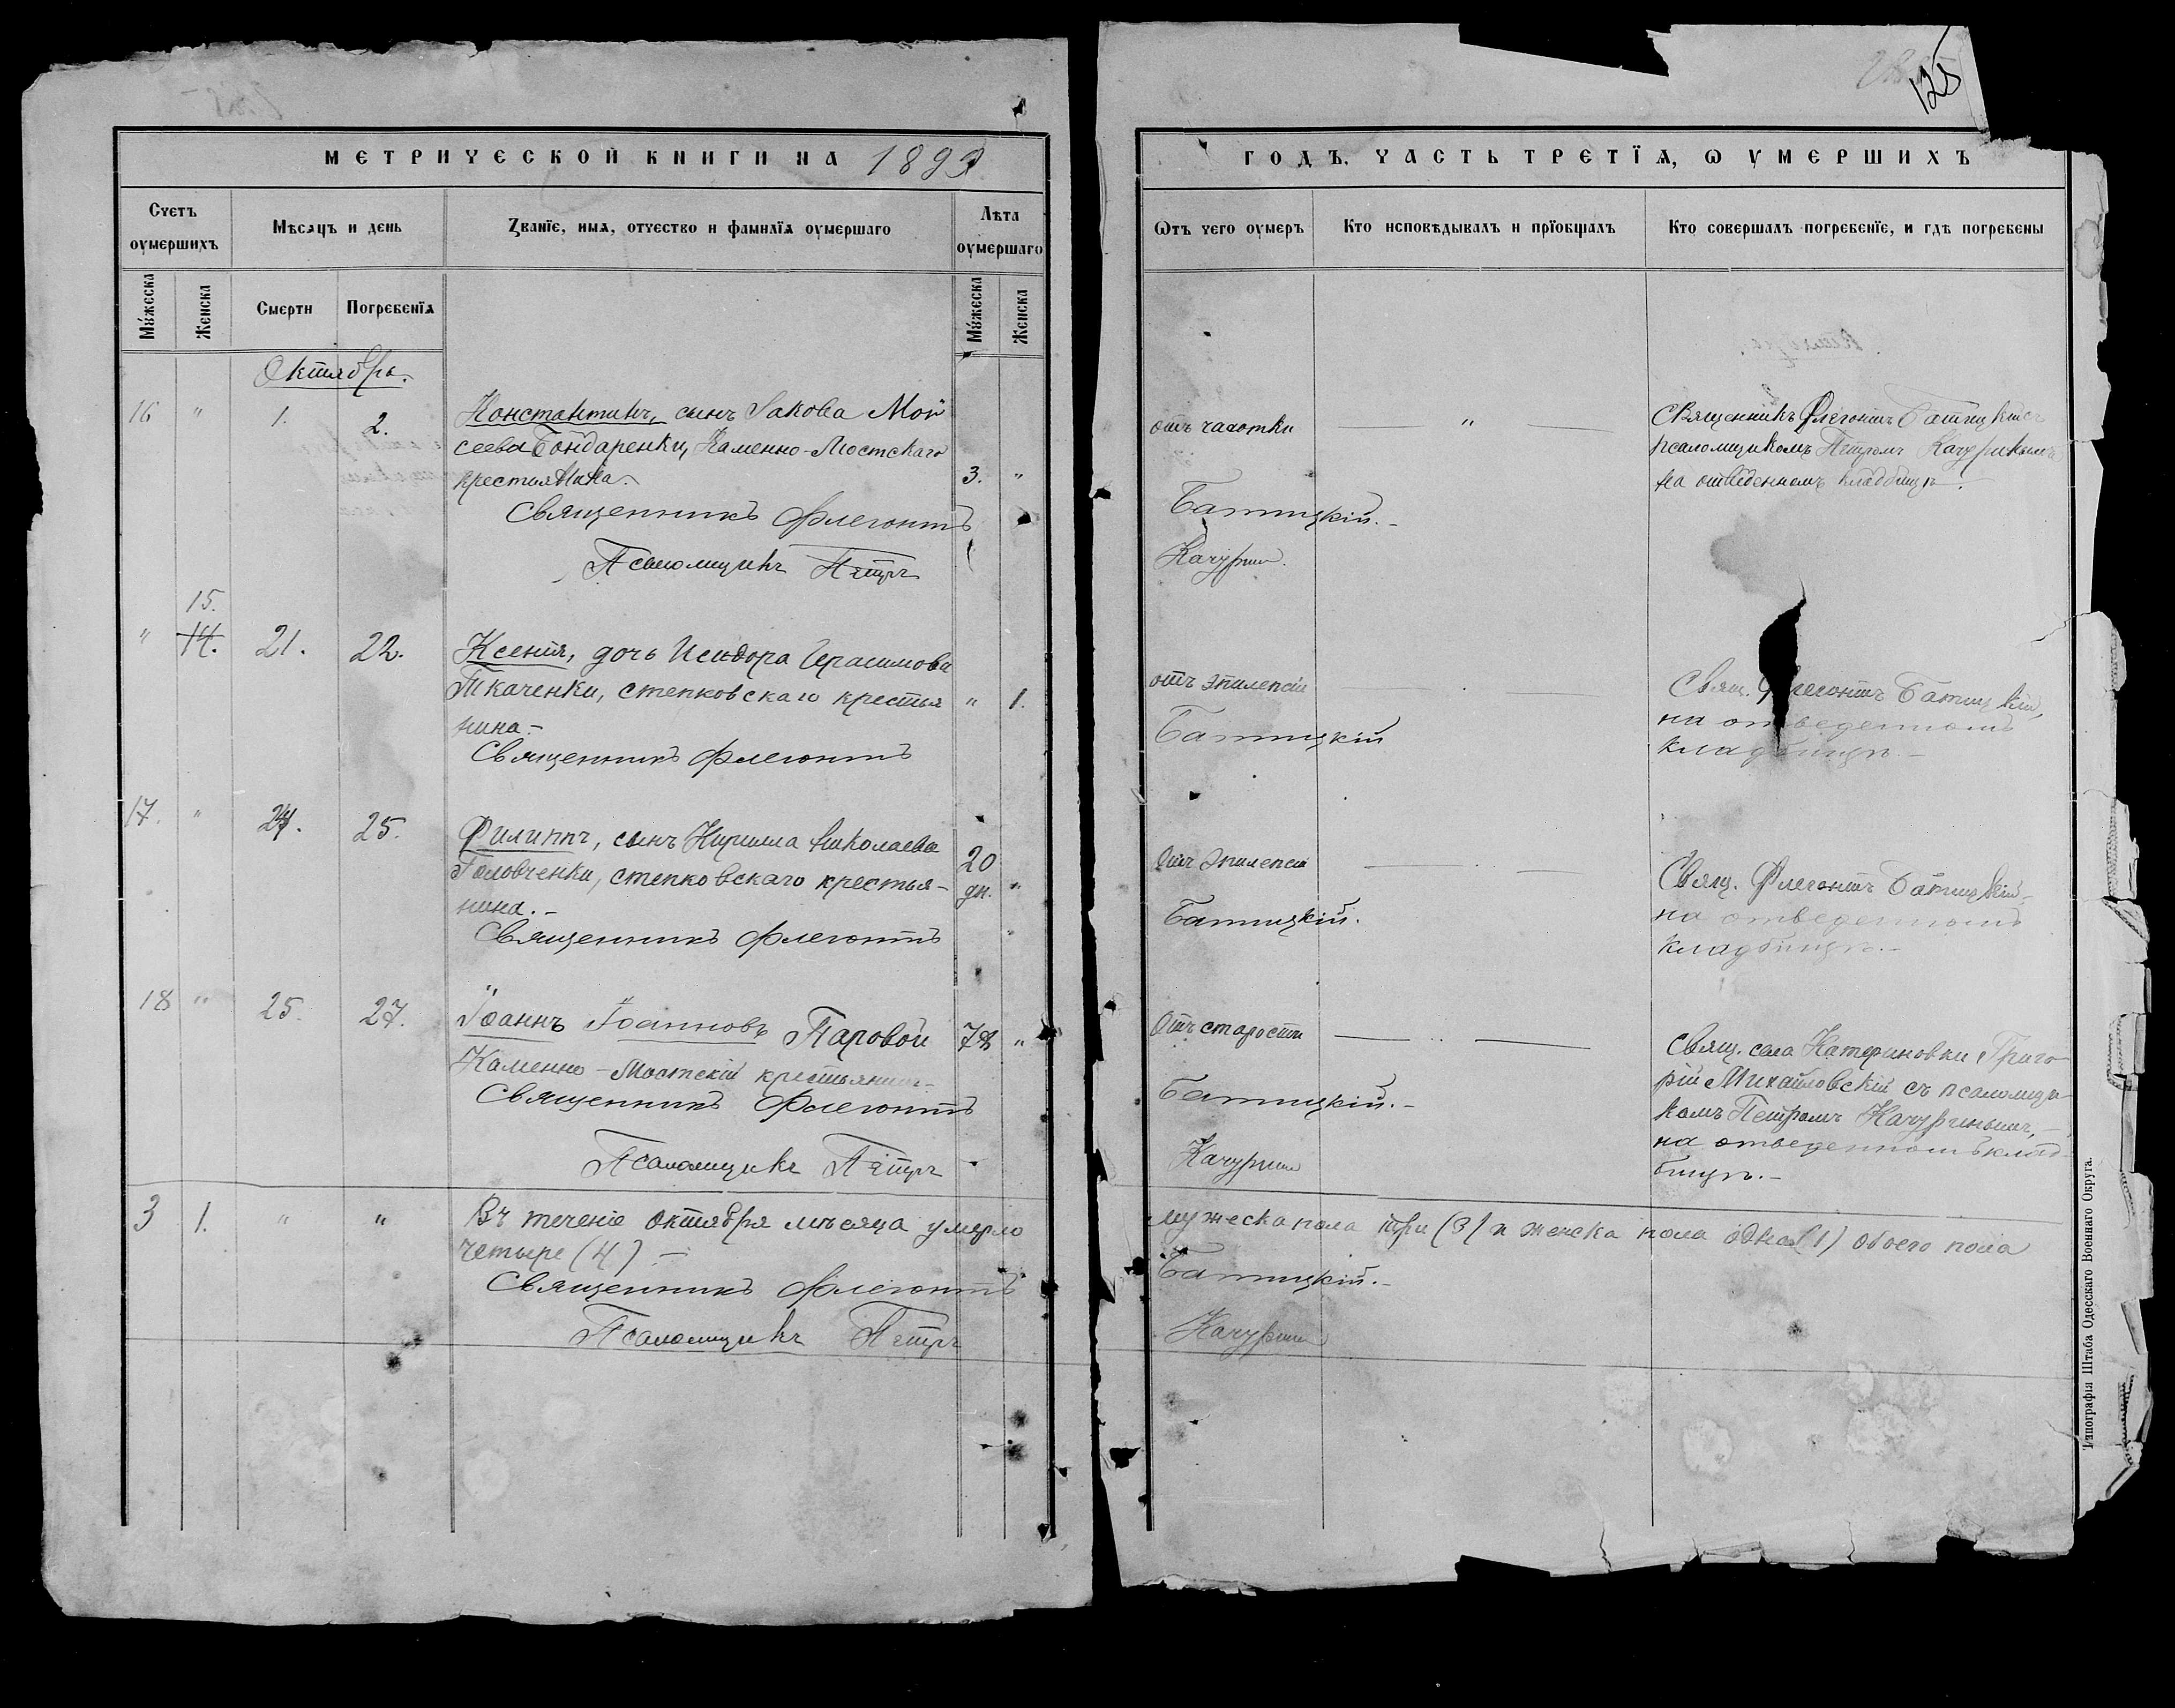 125
МЕТРИЧЕСКОЙ КНИГИ НА 1892
ГОДЪ, ЧАСТЬ ТРЕТІЯ, Ѡ УМЕРШИХЪ
Счетъ оумершихъ
Мѣсяцъ и день
Званіе, имя, отчество и фамилія оумершаго
Лѣта оумершаго
Ѿтъ чего оумеръ
Кто исповѣдывалъ и пріобщалъ
Кто совершалъ погребеніе, и гдѣ погребены
Мужеска
Женска
Смерти
Погребенія
Мужеска
Женска
Октябрь.
16 " 1. 2.
Константинъ, сынъ Іакова Мой
сеева Бондаренки, Каменно-Мостскаго
крестьянина. 3. "
Священникъ Флегонтъ
Псаломщикъ Петръ
отъ чахотки "
Священникъ Флегонтъ Батицкій съ
псаломщикомъ Петромъ Качуринымъ
на отведенномъ кладбищѣ.
Батицкій.
Качуринъ.
15.
" 14. 21. 22.
Ксенія, дочь Исидора Герасимова
Ткаченки, степковскаго крестья " 1.
нина.
Священникъ Флегонтъ
отъ эпилепсіи
Свящ. Флегонтъ Батицкій,
на отведенномъ
кладбищѣ.
Батицкій
17. " 24. 25.
Филиппъ, сынъ Кирилла Николаева
Головченки, степковскаго крестья- 20 дн. "
нина.
Священникъ Флегонтъ
Отъ эпилепсіи
Свящ. Флегонтъ Батицкій
на отведенномъ
кладбищѣ.
Батицкій.
18 " 25. 27.
Іоаннъ Іоанновъ Паровой 78 "
Каменно-Мостскій крестьянинъ
Священникъ Флегонтъ
Псаломщикъ Петръ
Отъ старости
Свящ. села Катериновки Григо
рій Михайловскій съ псаломщи-
комъ Петромъ Качуринымъ,
на отведенномъ клад
бищѣ.
Батицкій.
Качуринъ
3 1. " "
Въ теченіе Октября мѣсяца умерло мужеска пола три (3) и женска пола одна (1) обоего пола
четыре (4)
Священникъ Флегонтъ Батицкій.
Псаломщикъ Петръ Качуринъ
Типографія Штаба Одесскаго Военнаго Округа.